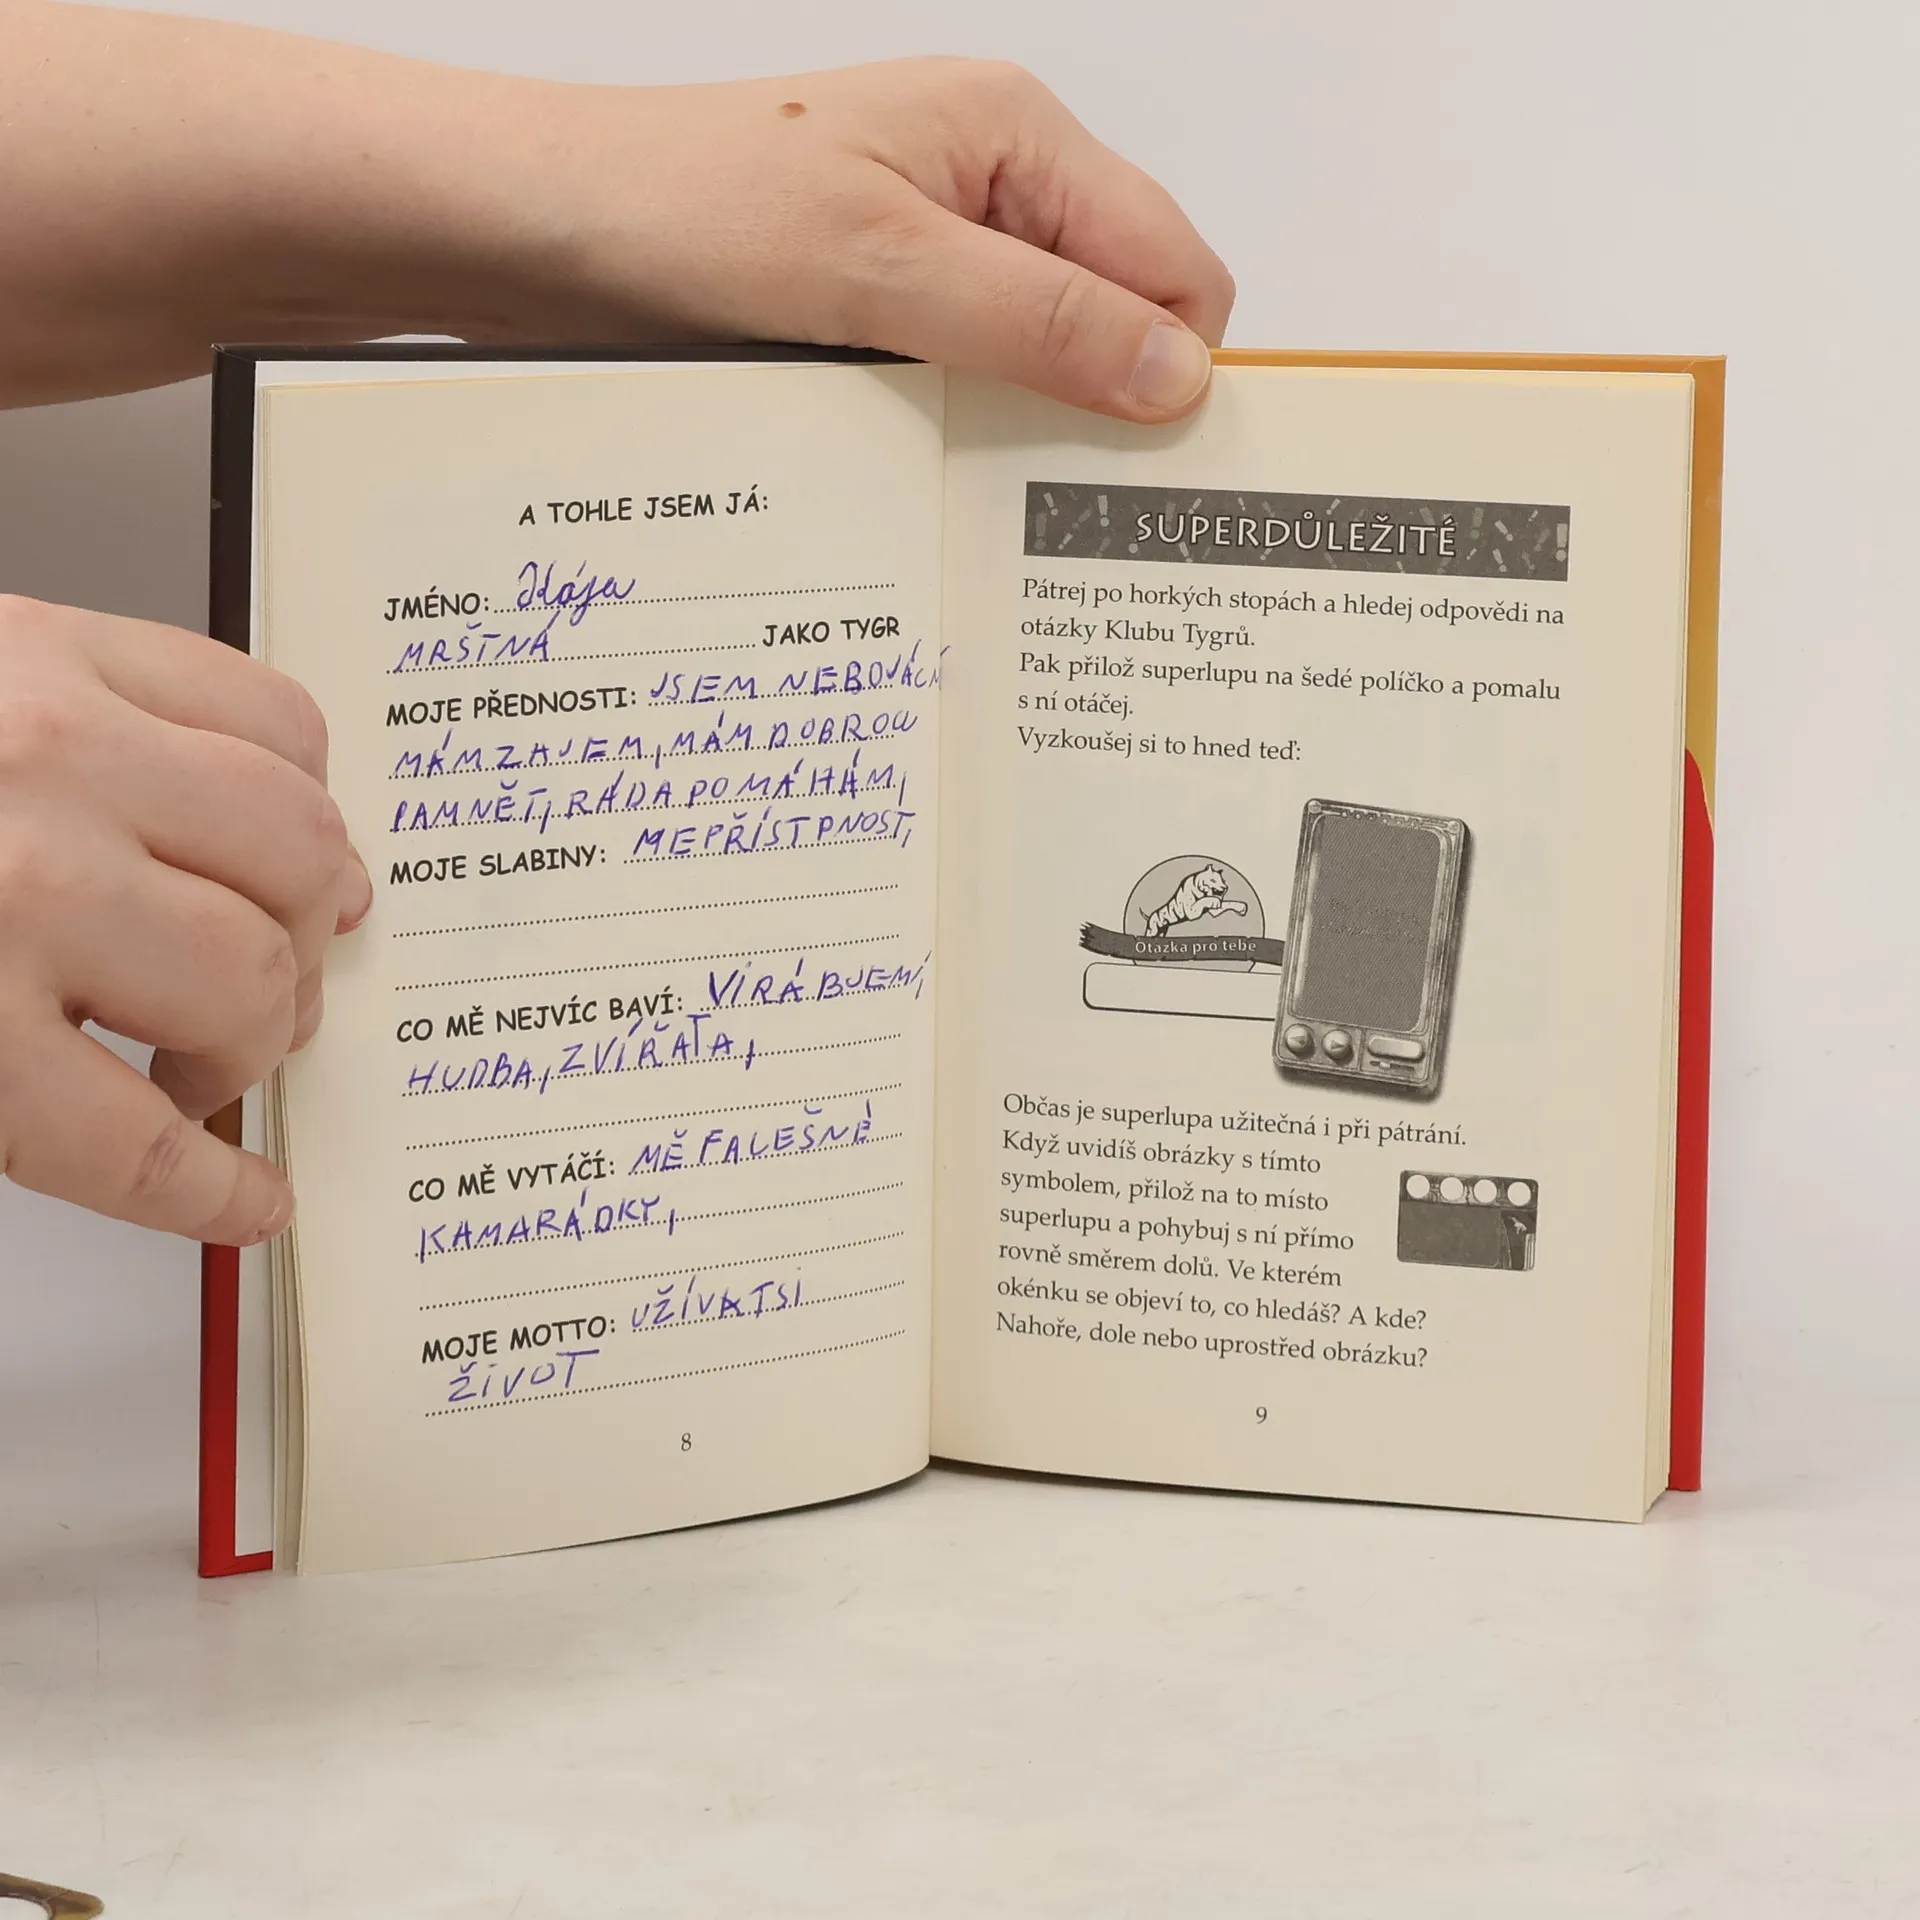 A TOHLE JSEM JÁ:
JMÉNO: Kája
MRŠTNÁ JAKO TYGR
MOJE PŘEDNOSTI: JSEM NEBOJÁCN
MÁM ZAJEM, MÁM DOBROU
PAMNĚŤ, RÁDA POMÁHÁM,
MOJE SLABINY: NEPŘÍSTPNOST,
CO MĚ NEJVÍC BAVÍ:
HUDBA, ZVÍŘATA,
CO MĚ VYTÁČÍ: MĚ FALEŠNÉ
KAMARÁDKY,
MOJE MOTTO: UŽÍVAT SI
ŽIVOT
8
SUPERDŮLEŽITÉ
Pátrej po horkých stopách a hledej odpovědi na
otázky Klubu Tygrů.
Pak přilož superlupu na šedé políčko a pomalu
s ní otáčej.
Vyzkoušej si to hned teď:
Otázka pro tebe
Občas je superlupa užitečná i při pátrání.
Když uvidíš obrázky s tímto
symbolem, přilož na to místo
superlupu a pohybuj s ní přímo
rovně směrem dolů. Ve kterém
okénku se objeví to, co hledáš? A kde?
Nahoře, dole nebo uprostřed obrázku?
9